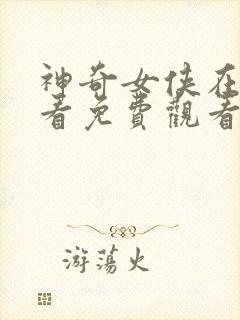 神奇女俠在
看免費觀看
游蕩火